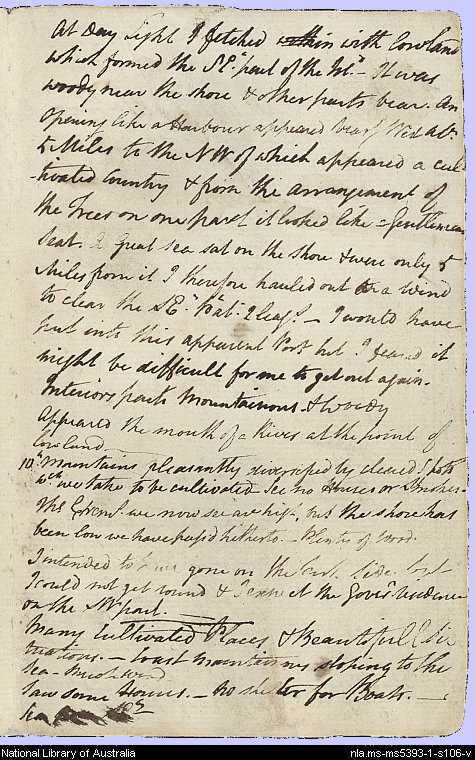 At Day light I fetched in with low land
which formed the SE. part of the Isd. - It was
woody near the shore & other parts bear. An
Opening like a Harbour appeared bearg. West abt.
5 Miles to the NW of which appeared a cul
-tivated Country & from the arrangement of
the Trees on one part it looked like a Gentlemans
Seat. A Great sea sat on the Shore & were only 5
Miles from it I therefore hauled out on a Wind
to clear the SE. 2 leags. - I would have
put into this apparent Port but I feared it
might be difficult for me to get out again.
Interior parts Mountainous & Woody
Appeared the mouth of a River at the point of
low land
10h. Mountains pleasantly diversified by cleared spots
wch. we take to be cultivated See no Houses or Smokes
The we now see are high, but the shore has
been low we have passd hitherto. - Plenty of Wood.
I intended to have gone on the side but
I could not get round & I expect the Govrs. residence
on the NW part.
Many Cultivated Places & Beautiful Situ
tuations. - Coast Mountainous sloping to the
Sea - Much Wood
Saw some Houses. - No shelter for Boats. -
Sea
National Library of Australia
nla.ms-ms5393-1-s106-v